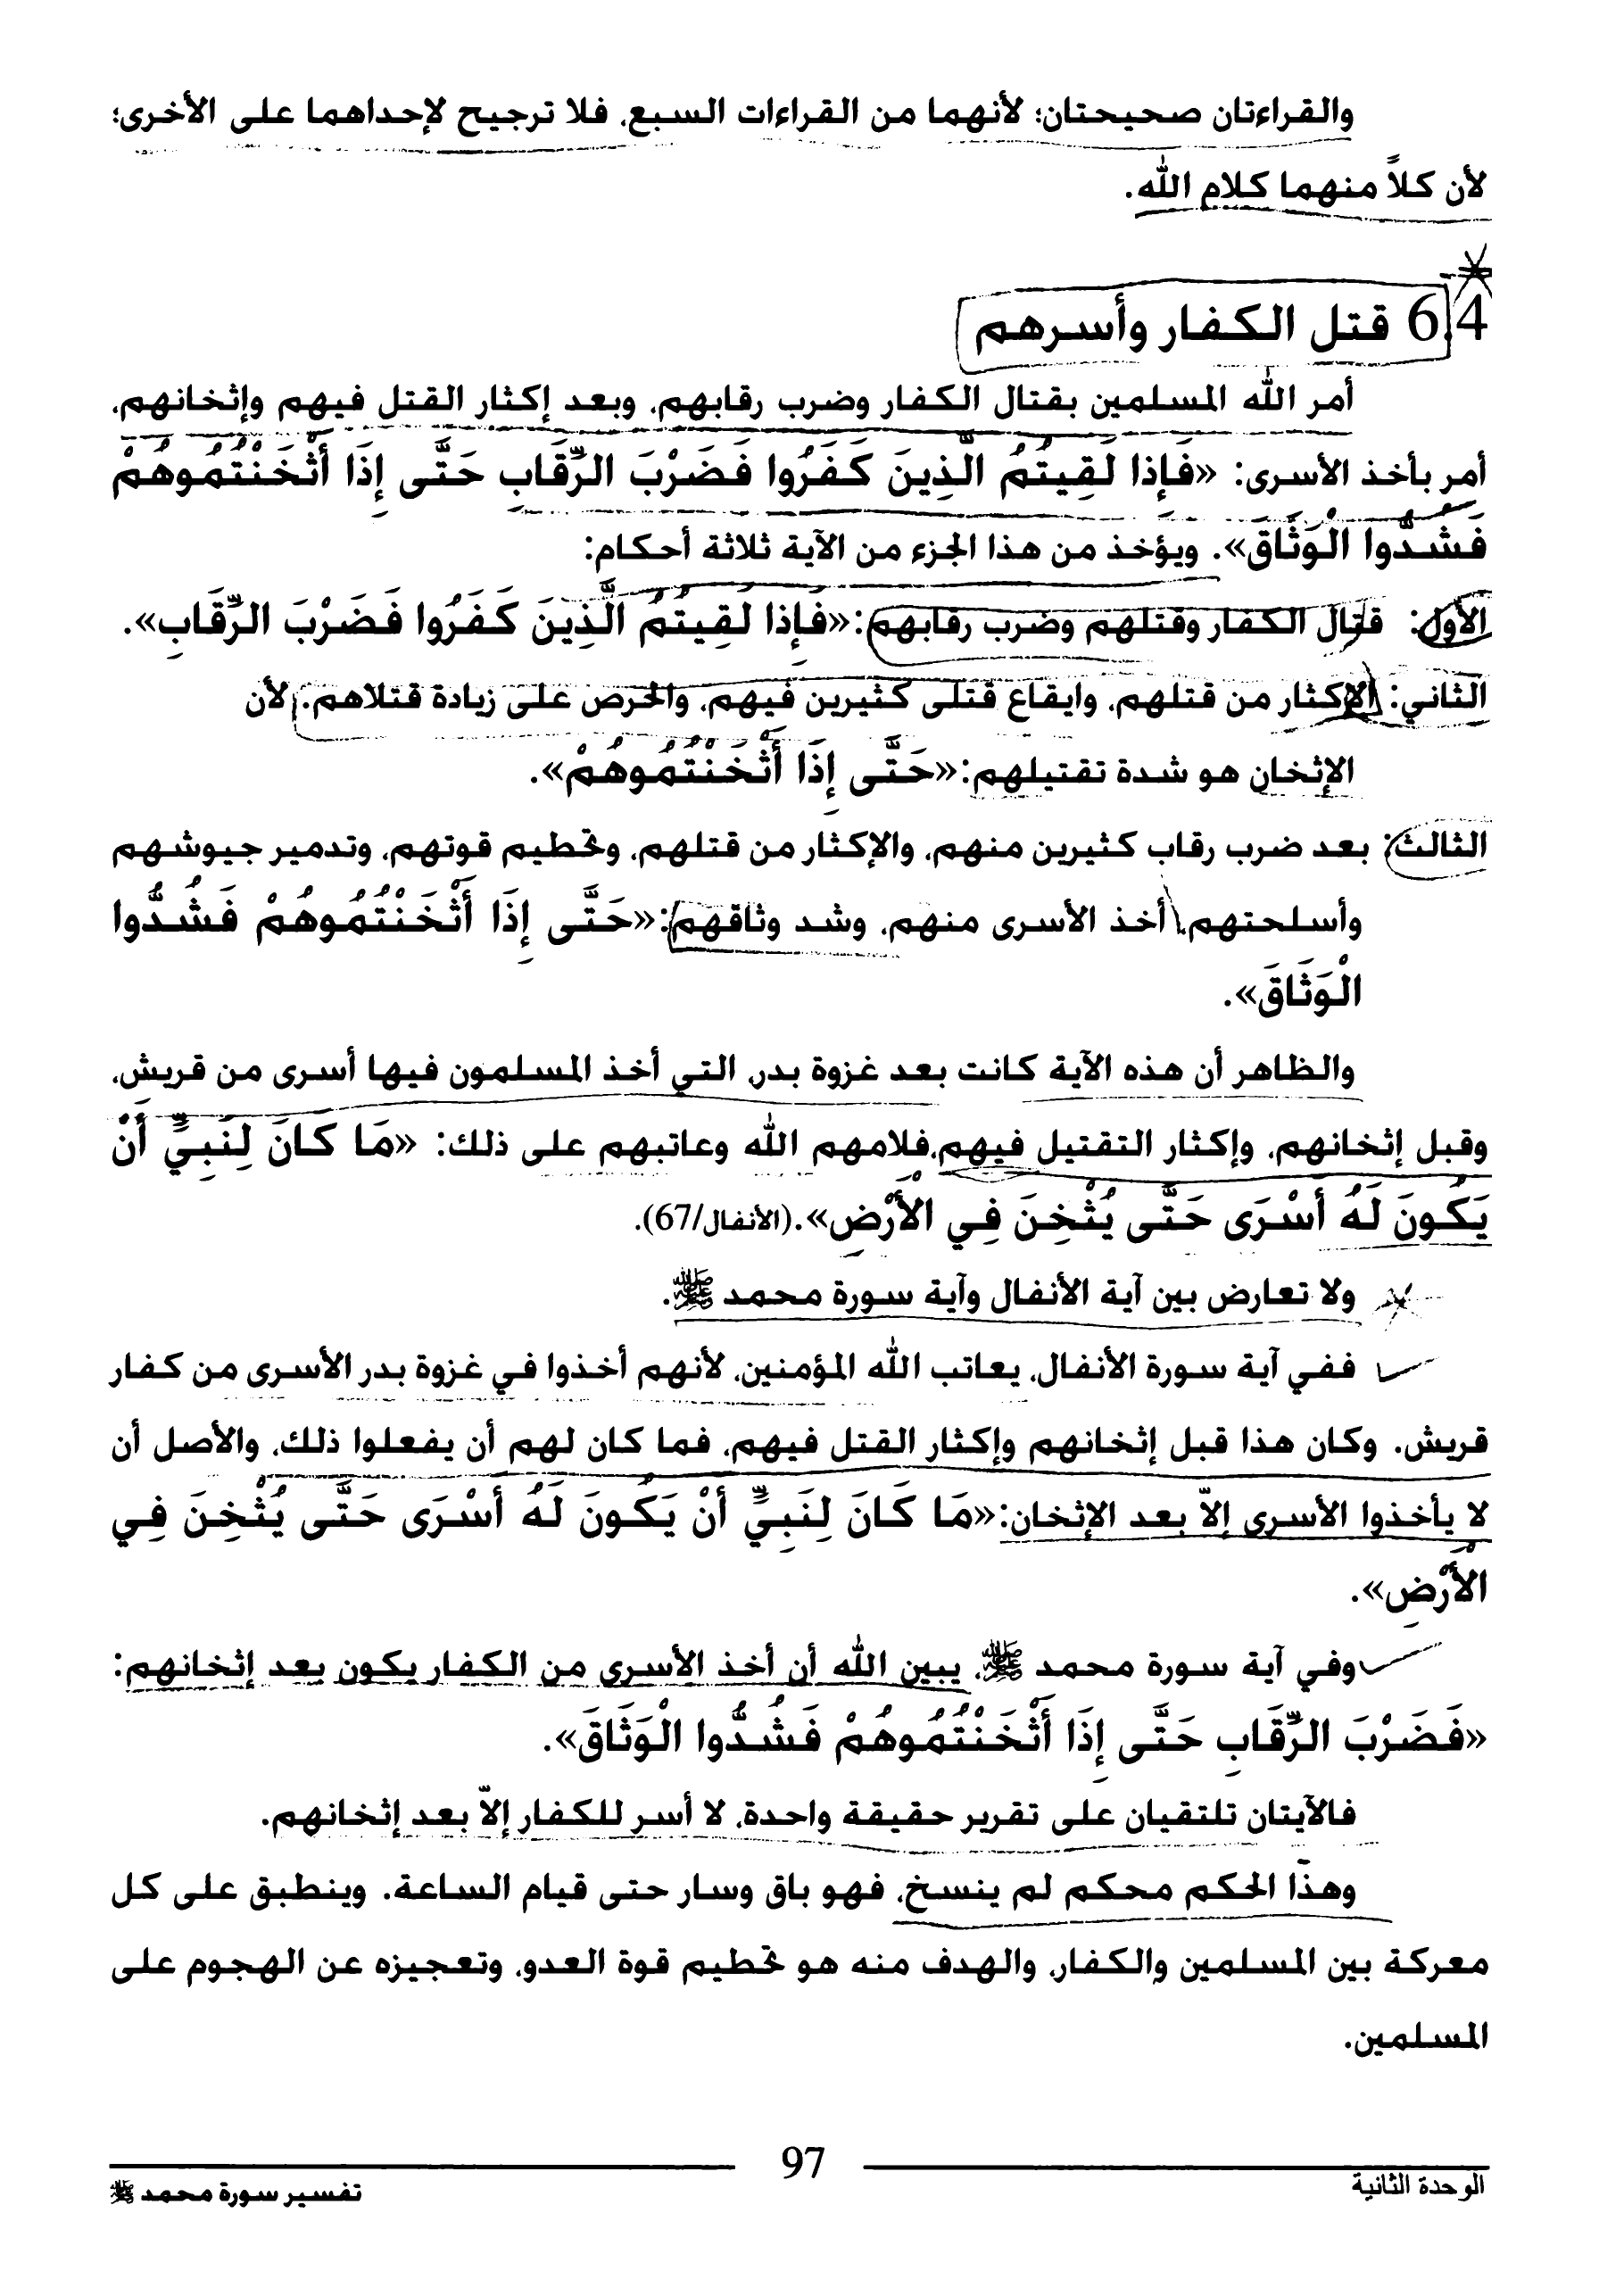 والقراءتان صحيحتان؛ لأنهما من القراءات السبع، فلا ترجيح لإحداهما على الأخرى؛
لأن كلاً منهما كلام الله.
6.4 قتل الكفار وأسرهم
أمر الله المسلمين بقتال الكفار وضرب رقابهم، وبعد إكثار القتل فيهم وإثخانهم،
أمر بأخذ الأسرى: «فَإِذا لَقِيتُمُ الَّذِينَ كَفَرُوا فَضَرْبَ الرِّقَابِ حَتَّى إِذَا أَثْخَنْتُمُوهُمْ
فَشُدُّوا الْوَثَاقَ». ويؤخذ من هذا الجزء من الآية ثلاثة أحكام:
الأول: قتال الكفار وقتلهم وضرب رقابهم:«فَإِذا لَقِيتُمُ الَّذِينَ كَفَرُوا فَضَرْبَ الرِّقَابِ».
الثاني: الإكثار من قتلهم، وايقاع قتلى كثيرين فيهم، والحرص على زيادة قتلاهم. لأن
الإثخان هو شدة تقتيلهم:«حَتَّى إِذَا أَثْخَنْتُمُوهُمْ».
الثالث: بعد ضرب رقاب كثيرين منهم، والإكثار من قتلهم، وتحطيم قوتهم، وتدمير جيوشهم
وأسلحتهم، أخذ الأسرى منهم، وشد وثاقهم:«حَتَّى إِذَا أَثْخَنْتُمُوهُمْ فَشُدُّوا
الْوَثَاقَ».
والظاهر أن هذه الآية كانت بعد غزوة بدر، التي أخذ المسلمون فيها أسرى من قريش،
وقبل إثخانهم، وإكثار التقتيل فيهم،فلامهم الله وعاتبهم على ذلك: «مَا كَانَ لِنَبِيٍّ أَنْ
يَكُونَ لَهُ أَسْرَى حَتَّى يُثْخِنَ فِي الْأَرْضِ».(الأنفال/67).
ولا تعارض بين آية الأنفال وآية سورة محمد ﷺ.
ففي آية سورة الأنفال، يعاتب الله المؤمنين، لأنهم أخذوا في غزوة بدر الأسرى من كفار
قريش. وكان هذا قبل إثخانهم وإكثار القتل فيهم، فما كان لهم أن يفعلوا ذلك، والأصل أن
لا يأخذوا الأسرى إلاّ بعد الإثخان:«مَا كَانَ لِنَبِيٍّ أَنْ يَكُونَ لَهُ أَسْرَى حَتَّى يُثْخِنَ فِي
الْأَرْضِ».
وفي آية سورة محمد ﷺ، يبين الله أن أخذ الأسرى من الكفار يكون بعد إثخانهم:
«فَضَرْبَ الرِّقَابِ حَتَّى إِذَا أَثْخَنْتُمُوهُمْ فَشُدُّوا الْوَثَاقَ».
فالآيتان تلتقيان على تقرير حقيقة واحدة، لا أسر للكفار إلاّ بعد إثخانهم.
وهذا الحكم محكم لم ينسخ، فهو باق وسار حتى قيام الساعة. وينطبق على كل
معركة بين المسلمين والكفار، والهدف منه هو تحطيم قوة العدو، وتعجيزه عن الهجوم على
المسلمين.
97
الوحدة الثانية
تفسير سورة محمد ﷺ